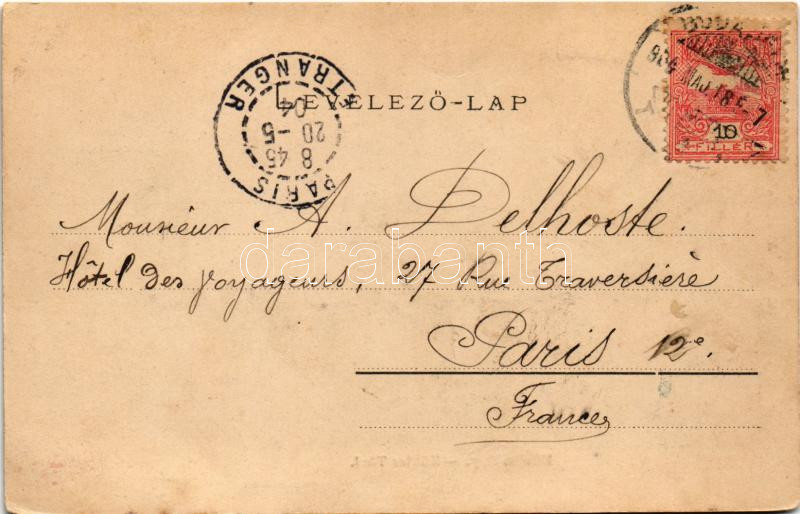 LEVELEZŐ-LAP
PARIS ETRANGER
8 45
20 -5
04
BUDAPEST
904 MAJ 18
10
FILLÉR
Monsieur A. Delhoste.
Hôtel des voyageurs, 27 Rue Traversière
Paris 12e.
France
darabanth.com